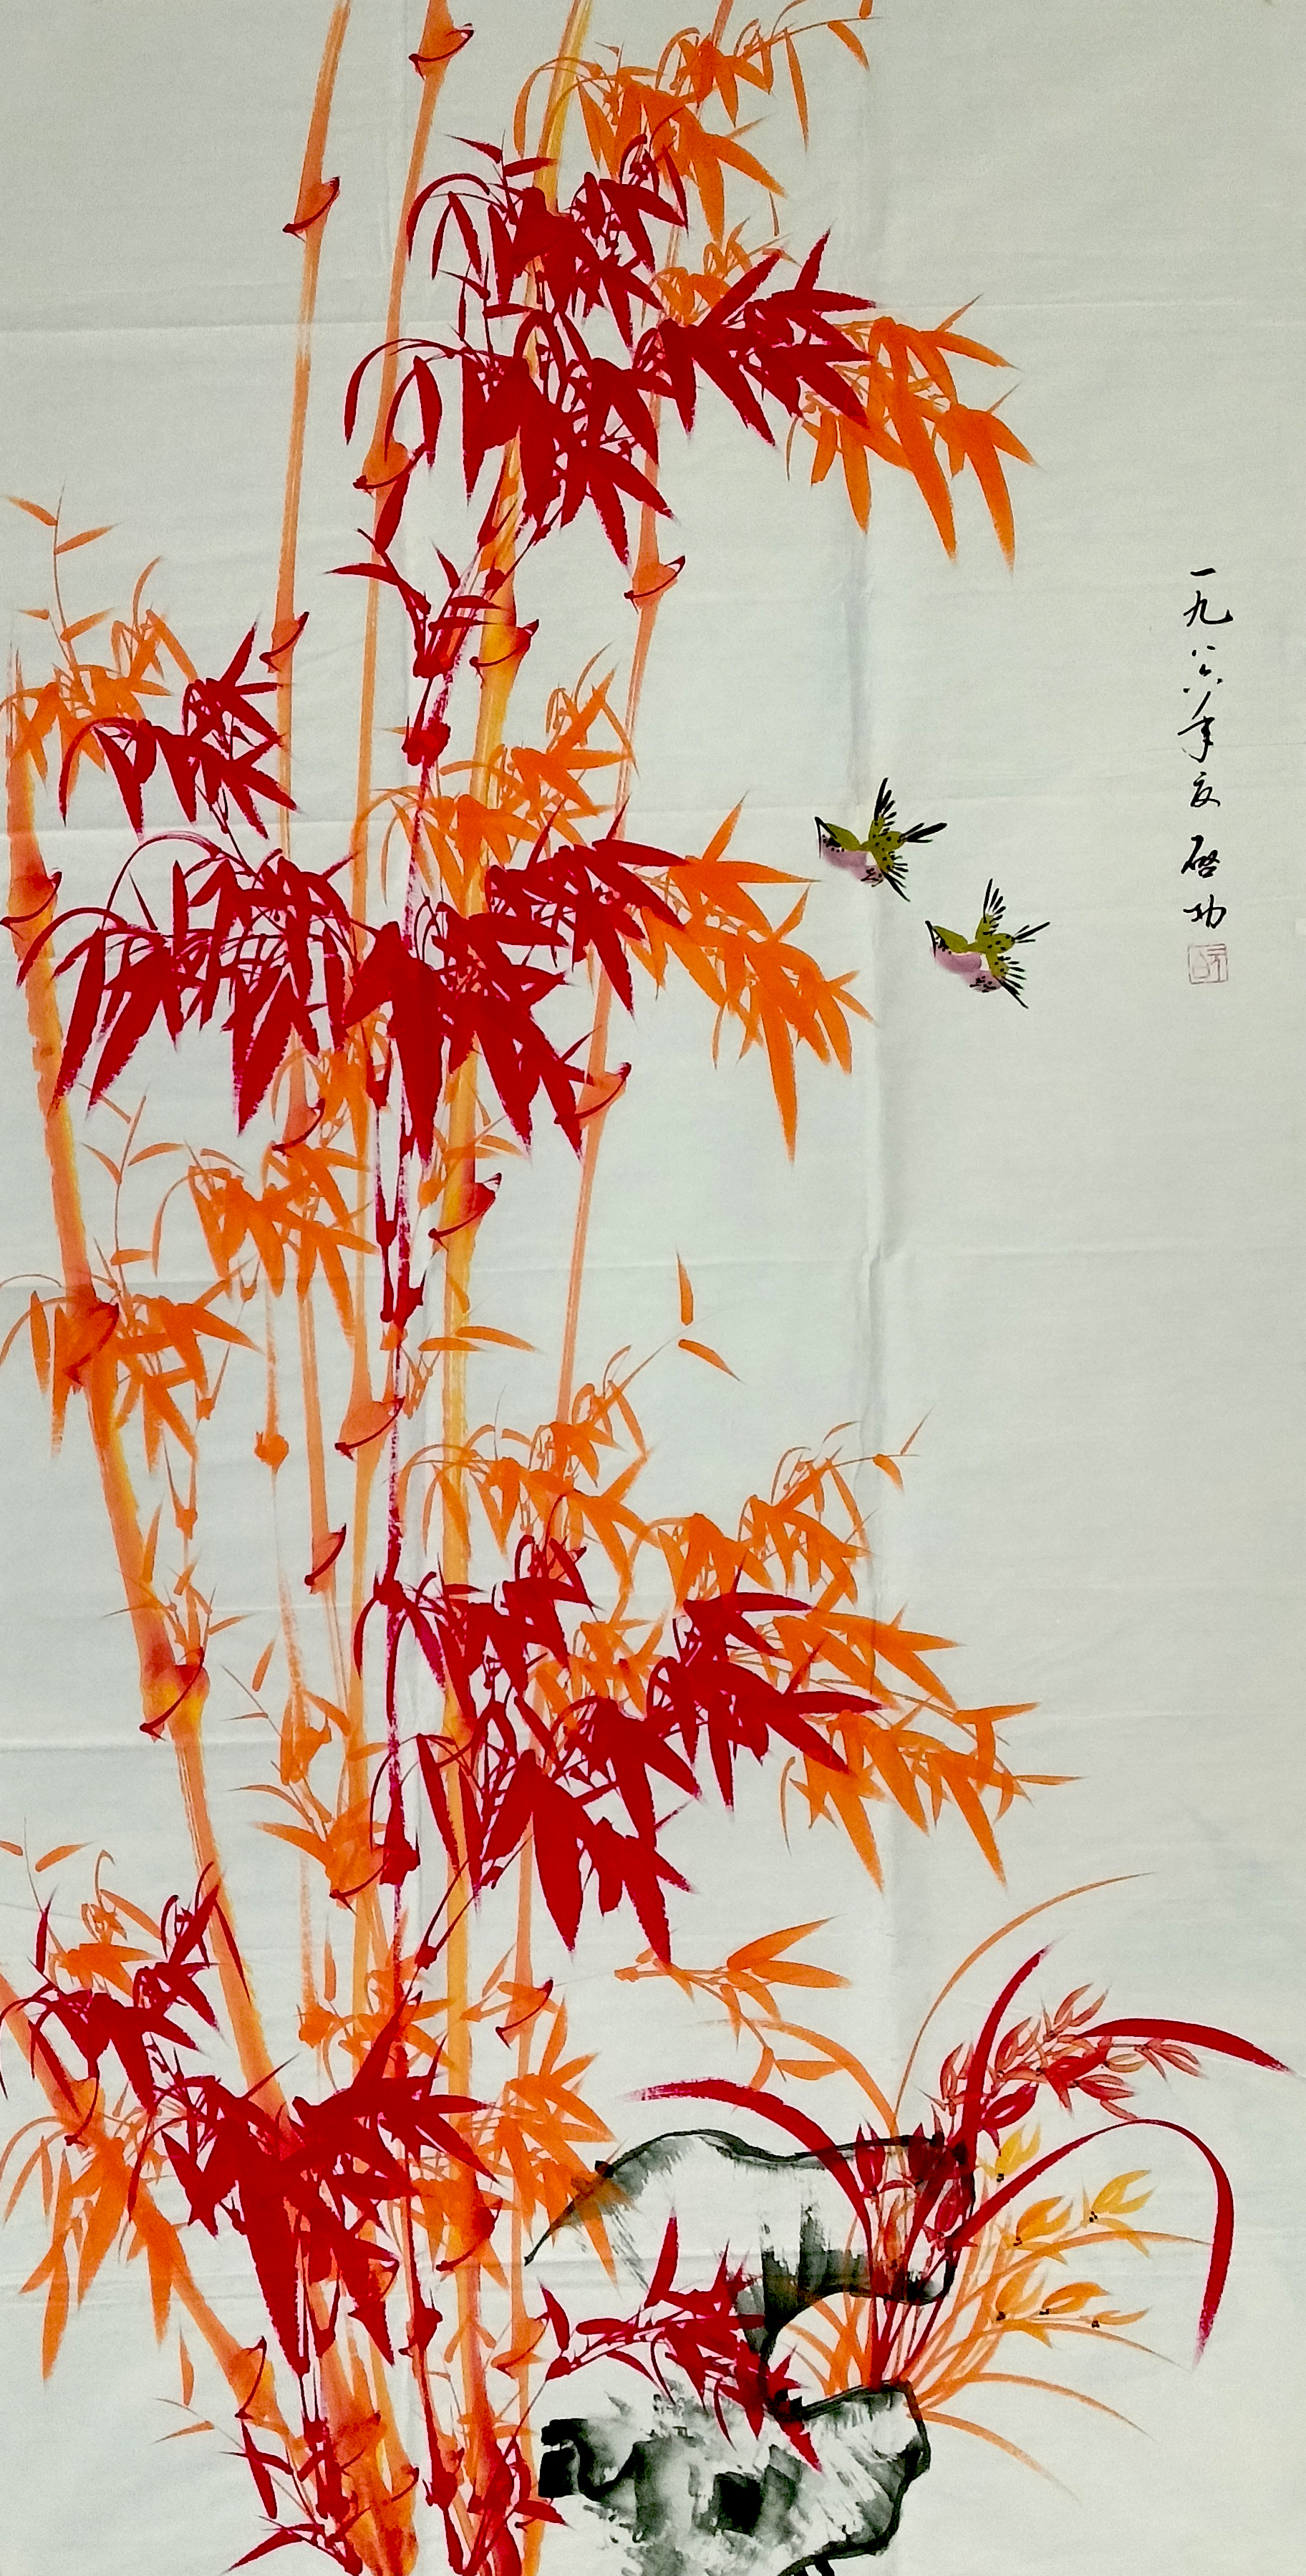 一九八六年夏 启功